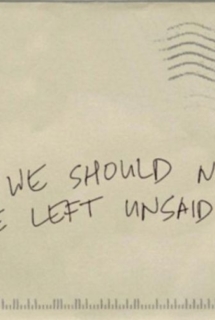 WE SHOULD N
E LEFT UNSAID